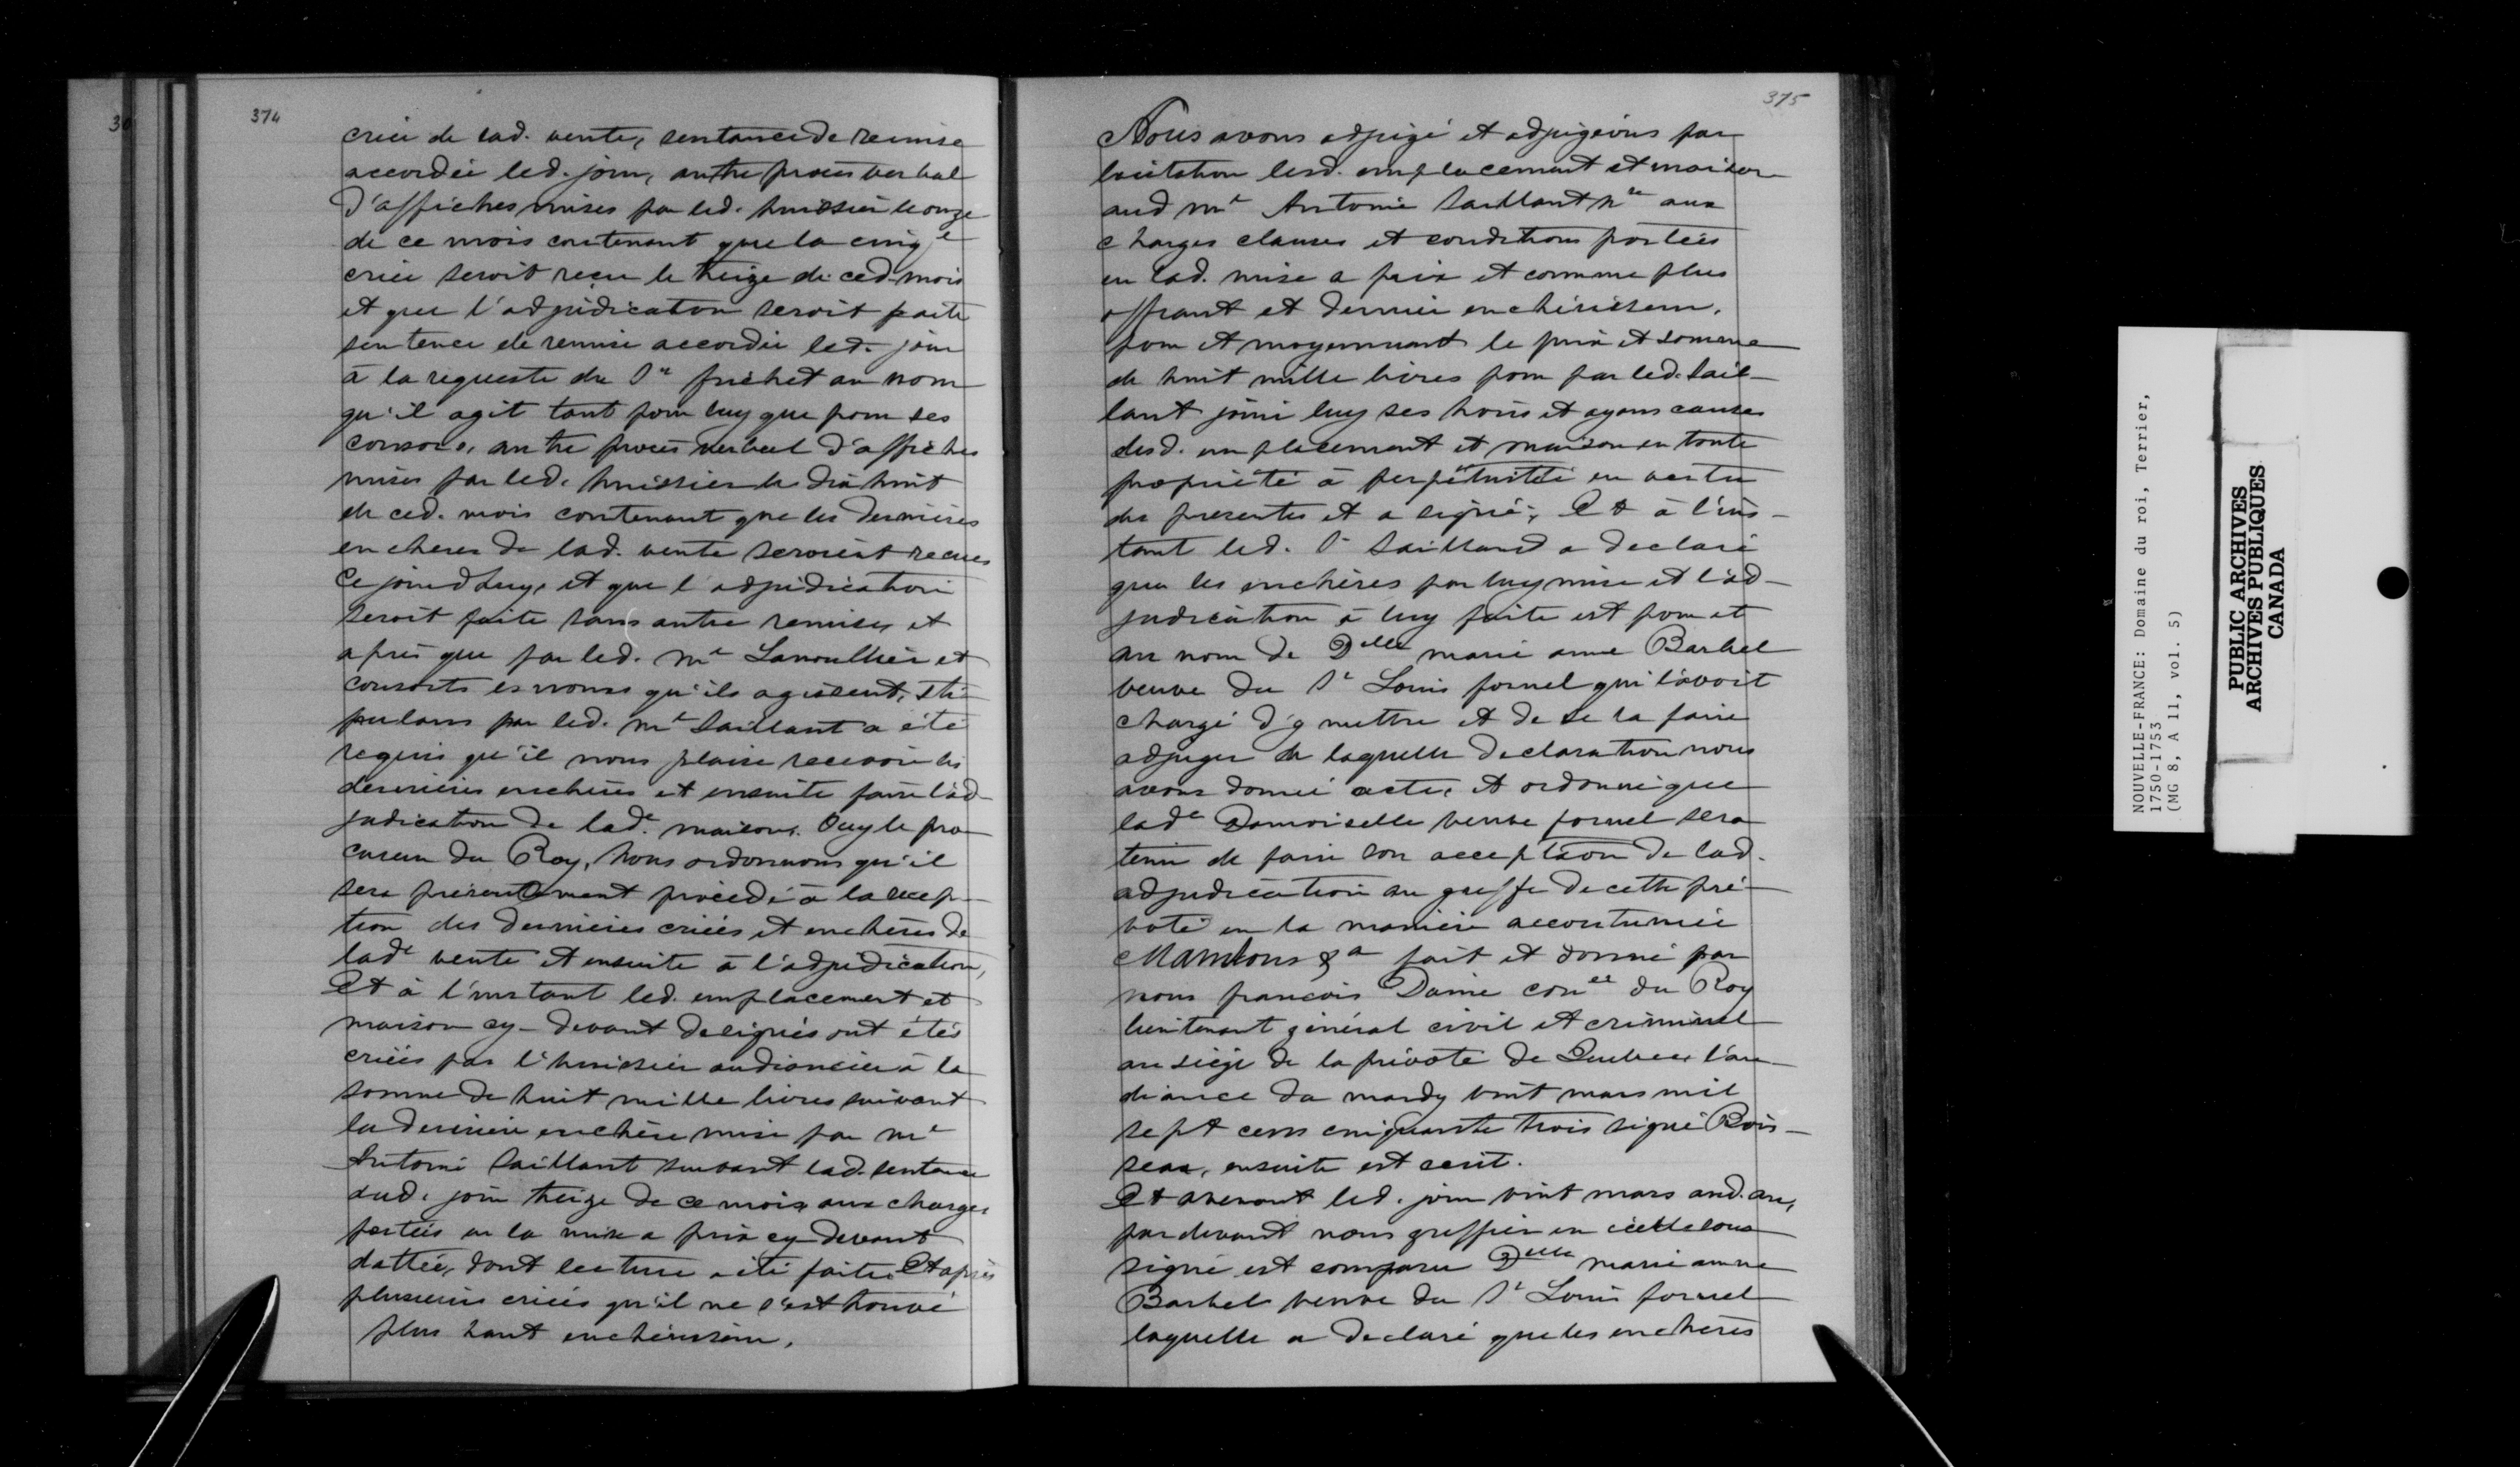 374
criée de lad. vente, sentance de remise
accordée led. jour, autre procès verbal
d'affiches mises par led. huissier le onze
de ce mois contenant que la cinq e
criée seroit reçue le treize de ced. mois
et que l'adjudication seroit faite
sentence de remise accordée led. jour
à la requeste du Sr frichet au nom
qu'il agit tant pour luy que pour ses
consors, autre procès verbal d'affiches
mises par led. huissier le dix huit
de ced. mois contenant que les dernières
encheres de lad. vente seroient recues
Ce jourdhuy, et que l'adjudication
seroit faite sans autre remises et
après que par led. Me Lanoullier et
consorts es noms qu'ils agissent, sti-
pulans par led. Me Saillant a été
requis qu'il nous plaise recevoir les
dernières enchères et ensuite faire l'ad-
judication de lade. maison. Ouy le pro-
cureur du Roy, Nous ordonnons qu'il
sera présentement procédé à la recep-
tion des dernières criées et enchères de
lade vente et ensuite à l'adjudication,
Et à l'instant led. emplacement et
maison cy-devant designés ont étés
criés par l'huissier audiancier à la
somme de huit mille livres suivant
la dernière enchère mise par Me
Antoine Saillant suivant lad. sentence
dud. jour treize de ce mois aux charges
portées en la mise a prix cy-devant
dattée, dont lecture a été faite. Et après
plusieurs criées qu'il ne s'est trouvé
plus haut enchérisseur,
375
Nous avons adjugé et adjugeons par
licitation lesd. emplacement et maison
aud Me Antoine Saillant nre aux
charges clauses et conditions portées
en lad. mise a prix et comme plus
offrant et dernier enchérisseur,
pour et moyennant le prix et somme
de huit mille livres pour par led. Sail-
lant jouir luy ses hoirs et ayans causes
desd. emplacement et maison en toute
propriété à perpétuité en vertu
des presentes et a signé; Et à l'ins-
tant led. Sr Sailland a declaré
que les enchères par luy mise et l'ad-
judication à luy faite est pour et
au nom de Delle marie anne Barbel
veuve du Sr Louis fornel qui l'avoit
chargé d'y mettre et de se la faire
adjuger de laquelle declaration nous
avons donné acte, et ordonné que
lade Damoiselle veuve fornel sera
tenue de faire son acceptaon de lad.
adjudication au greffe de cette pré-
voté en la manière accoutumée
Mandons &a fait et donné par
nous francois Daine coner du Roy
lieutenant général civil et criminel
au siège de la prévoté de Quebec, l'au-
diance du mardy vint mars mil
sept cens cinquante trois signé Bois-
seau, ensuite est ecrit.
Et avenant led. jour vint mars aud. an,
par devant nous greffier en icelle sous
signé est comparue Delle marie anne
Barbel veuve du Sr Louis fornel
laquelle a declaré que les enchères
NOUVELLE-FRANCE: Domaine du roi, Terrier,
1750-1753
(MG 8, A 11, vol. 5)
PUBLIC ARCHIVES
ARCHIVES PUBLIQUES
CANADA